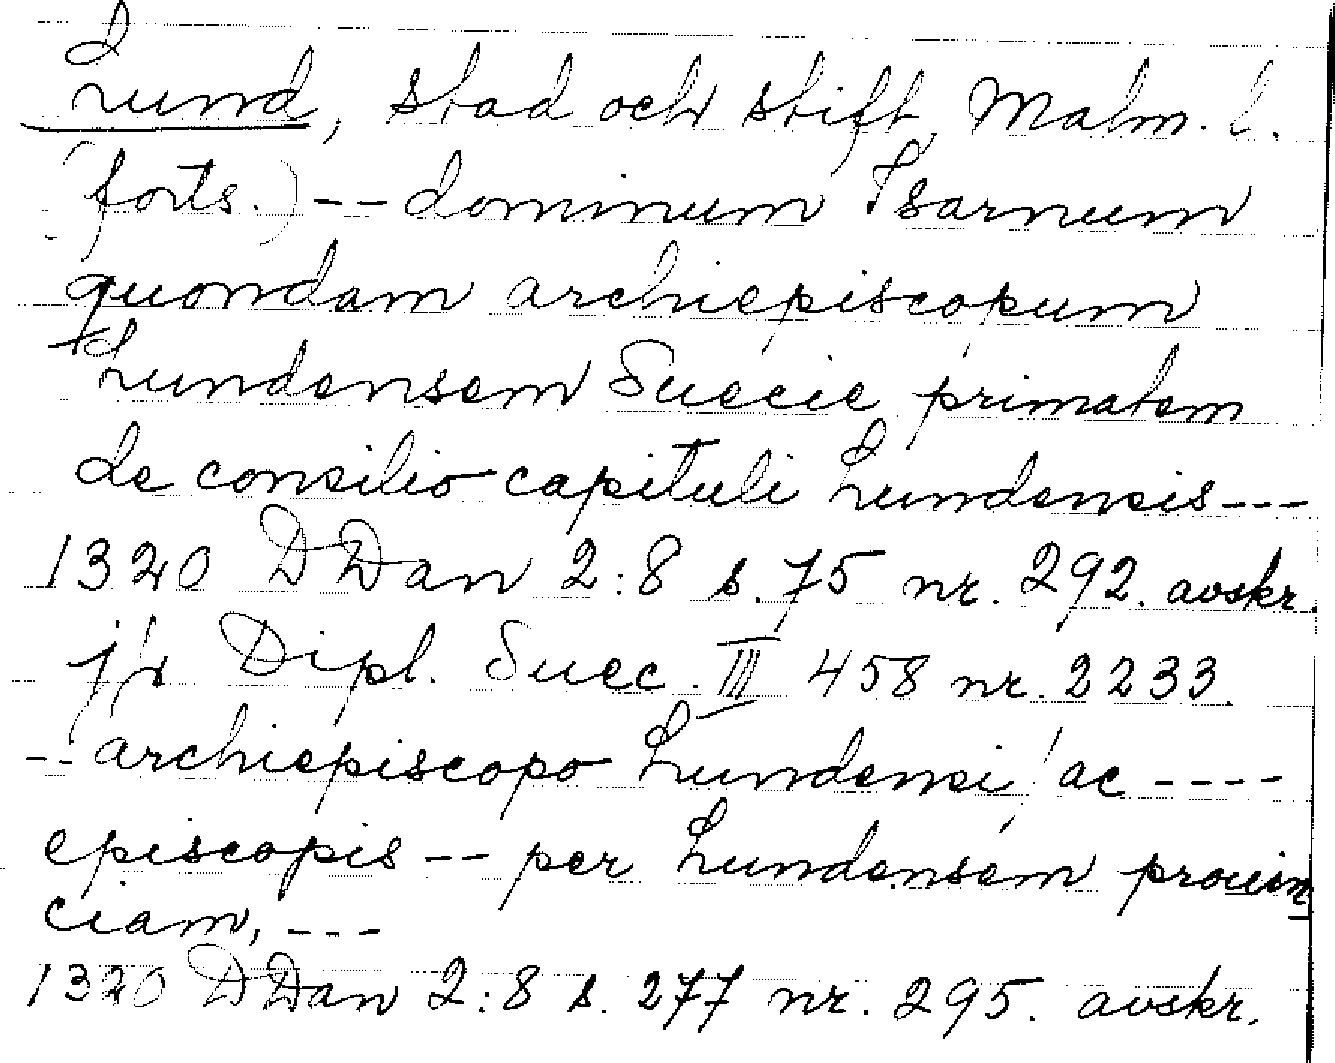 Lund, stad och stift, Malm. l.
(forts.) -- dominum Isarnum
quondam archiepiscopum
Lundensem Suecie primatem
de consilio capituli Lundensis ---
1320 DDan 2:8 s. 75 nr. 292. avskr.
jfr Dipl. Suec. III 458 nr. 2233.
-- archiepiscopo Lundensi / ac ----
episcopis -- per Lundensem prouin
ciam, ---
1320 DDan 2:8 s. 277 nr. 295. avskr.